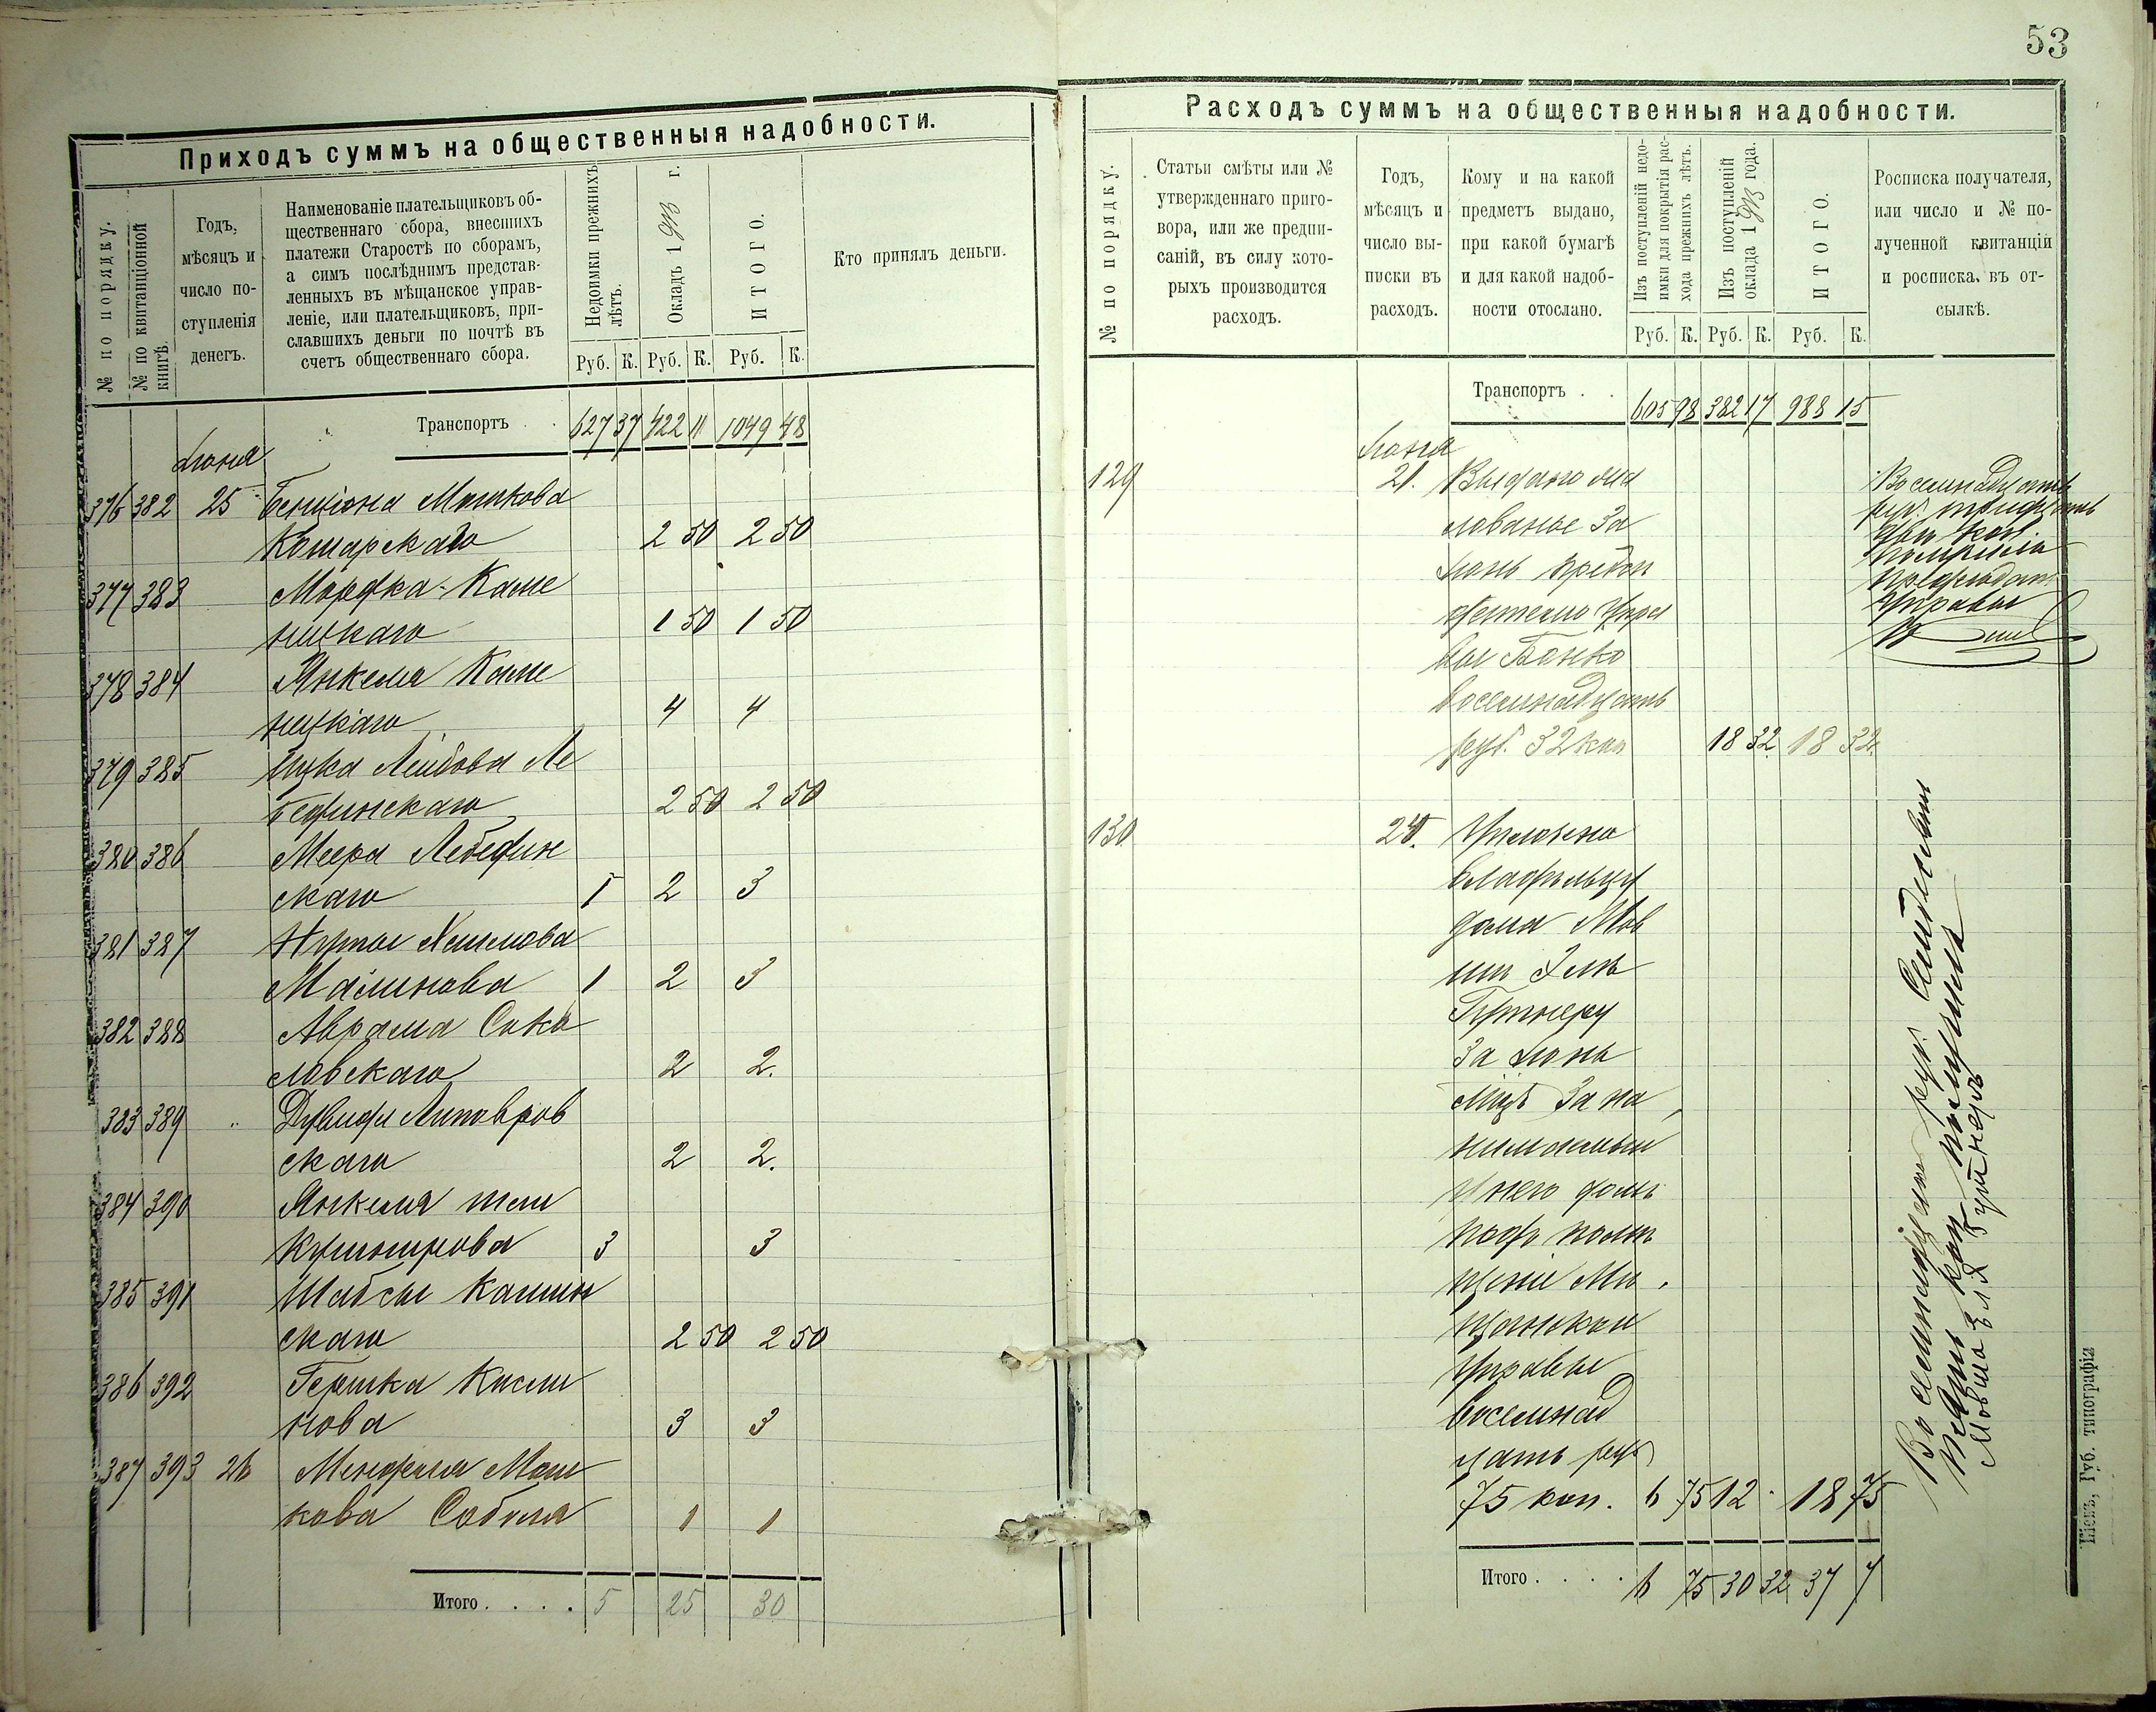 53
Приходъ суммъ на общественныя надобности.
№ по порядку.
№ по квитанціонной книгѣ.
Годъ, мѣсяцъ и число поступленія денегъ.
Наименованіе плательщиковъ об-
щественнаго сбора, внесшихъ
платежи Старостѣ по сборамъ,
а симъ послѣднимъ представ-
ленныхъ въ мѣщанское управ-
леніе, или плательщиковъ, при-
славшихъ деньги по почтѣ въ
счетъ общественнаго сбора.
Недоимки прежнихъ лѣтъ.
Окладъ 1913 г.
ИТОГО.
Руб. К. Руб. К. Руб. К.
Кто принялъ деньги.
Транспортъ . . 627 37 422 11 1049 48
Іюня
376 382 25 Бенціона Мошкова
Кошарскаго 2 50 2 50
377 383 Мордка Каме
ницкаго 1 50 1 50
378 384 Янкеля Каме
ницкаго 4 4
379 385 Ицка Лейбова Ле
бединскаго 2 50 2 50
380 386 Меера Лебедин
скаго 1 2 3
381 387
Малинова 1 2 3
382 388 Абрама Соко
ловскаго 2 2.
383 389 Липовров
скаго 2 2.
384 390 Янкеля
Кушнирова 3 3
385 391 Шабсы
скаго 2 50 2 50
386 392 Гершка
нова 3 3
387 393 26 Менделя Мош
кова Собеля 1 1
Итого . . . . 5 25 30
Расходъ суммъ на общественныя надобности.
№ по порядку.
Статьи смѣты или №
утвержденнаго приго-
вора, или же предпи-
саній, въ силу кото-
рыхъ производится
расходъ.
Годъ,
мѣсяцъ и
число вы-
писки въ
расходъ.
Кому и на какой
предметъ выдано,
при какой бумагѣ
и для какой надоб-
ности отослано.
Изъ поступленій недо-
имки для покрытія рас-
хода прежнихъ лѣтъ.
Изъ поступленій
оклада 1913 года.
ИТОГО.
Руб. К. Руб. К. Руб. К.
Росписка получателя,
или число и № по-
лученной квитанціи
и росписка въ от-
сылкѣ.
Транспортъ . . 605 98 382 17 988 15
Іюня
129 21. Выдано жа
лованье за
Іюнь предсѣ
дателю Упра
вы Бонко
восемнадцать
руб. 32 коп 18 32 18 32
Восемнадцать
руб. тридцать
два коп
получилъ
Предсѣдат.
Управы
130 24. Уплочено
владѣльцу
дома Мов
ши Эля
Гутнеру
за Іюнь
мѣцъ за на
нимаемый
у него домъ
подъ помѣ
щеніе Мѣ
щанской
Управы
восемнад
цать руб
75 коп. 6 75 12 18 75
Восемнадцать руб. Семдесятъ
пять коп получилъ
Мовша Эля Гутнеръ
Итого . . . . 6 75 30 32 37 7
Кіевъ, Губ. типографія